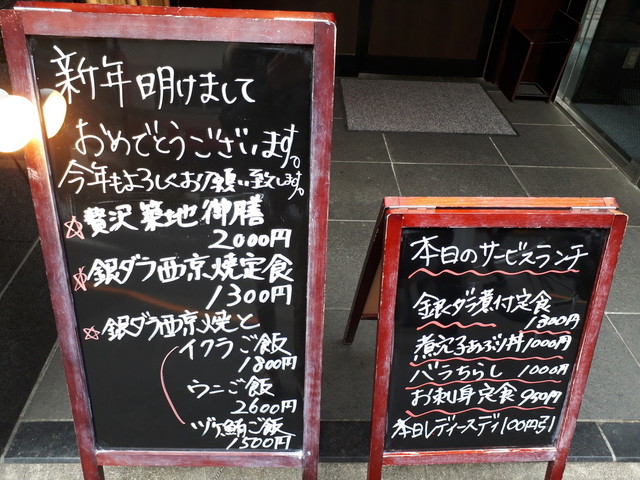 新年明けまして
おめでとうございます。
今年もよろしくお願い致します。
☆贅沢築地御膳
2000円
☆銀ダラ西京焼定食
1300円
☆銀ダラ西京焼と
イクラご飯
1800円
ウニご飯
2600円
ヅケ鮪ご飯
1500円
本日のサービスランチ
銀ダラ煮付定食
1300円
煮穴子あぶり丼1000円
バラちらし 1000円
お刺身定食 950円
本日レディースデイ100円引